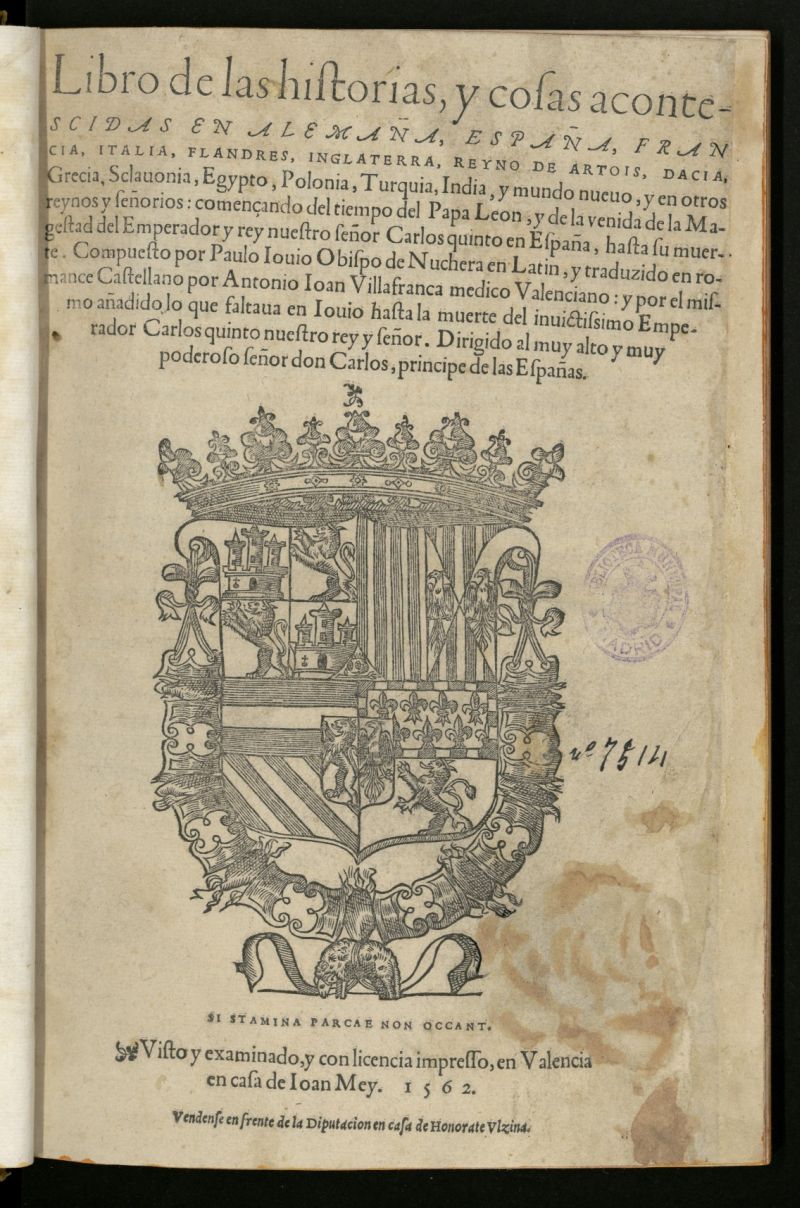 Libro de las hiſtorias, y coſas aconte-
SCIDAS EN ALEMAÑA, ESPAÑA, FRAN
CIA, ITALIA, FLANDRES, INGLATERRA, REYNO DE ARTOIS, DACIA,
Grecia, Sclauonia, Egypto, Polonia, Turquia, India, y mundo nueuo, y en otros
reynos y ſeñorios: començando del tiempo del Papa Leon, y de la venida de la Ma-
geſtad del Emperador y rey nueſtro ſeñor Carlos quinto en Eſpaña, haſta ſu muer-
te. Compueſto por Paulo Iouio Obiſpo de Nuchera en Latin, y traduzido en ro-
mance Caſtellano por Antonio Ioan Villafranca medico Valenciano: y por el miſ-
mo añadido lo que faltaua en Iouio haſta la muerte del inuictiſsimo Empe-
rador Carlos quinto nueſtro rey y ſeñor. Dirigido al muy alto y muy
poderoſo ſeñor don Carlos, principe de las Eſpañas.
BIBLIOTECA MUNICIPAL
MADRID
nº 7514
SI STAMINA PARCAE NON OCCANT.
Viſto y examinado, y con licencia impreſſo, en Valencia
en caſa de Ioan Mey. 1562.
Vendenſe en frente de la Diputacion en caſa de Honorate Vlzina.